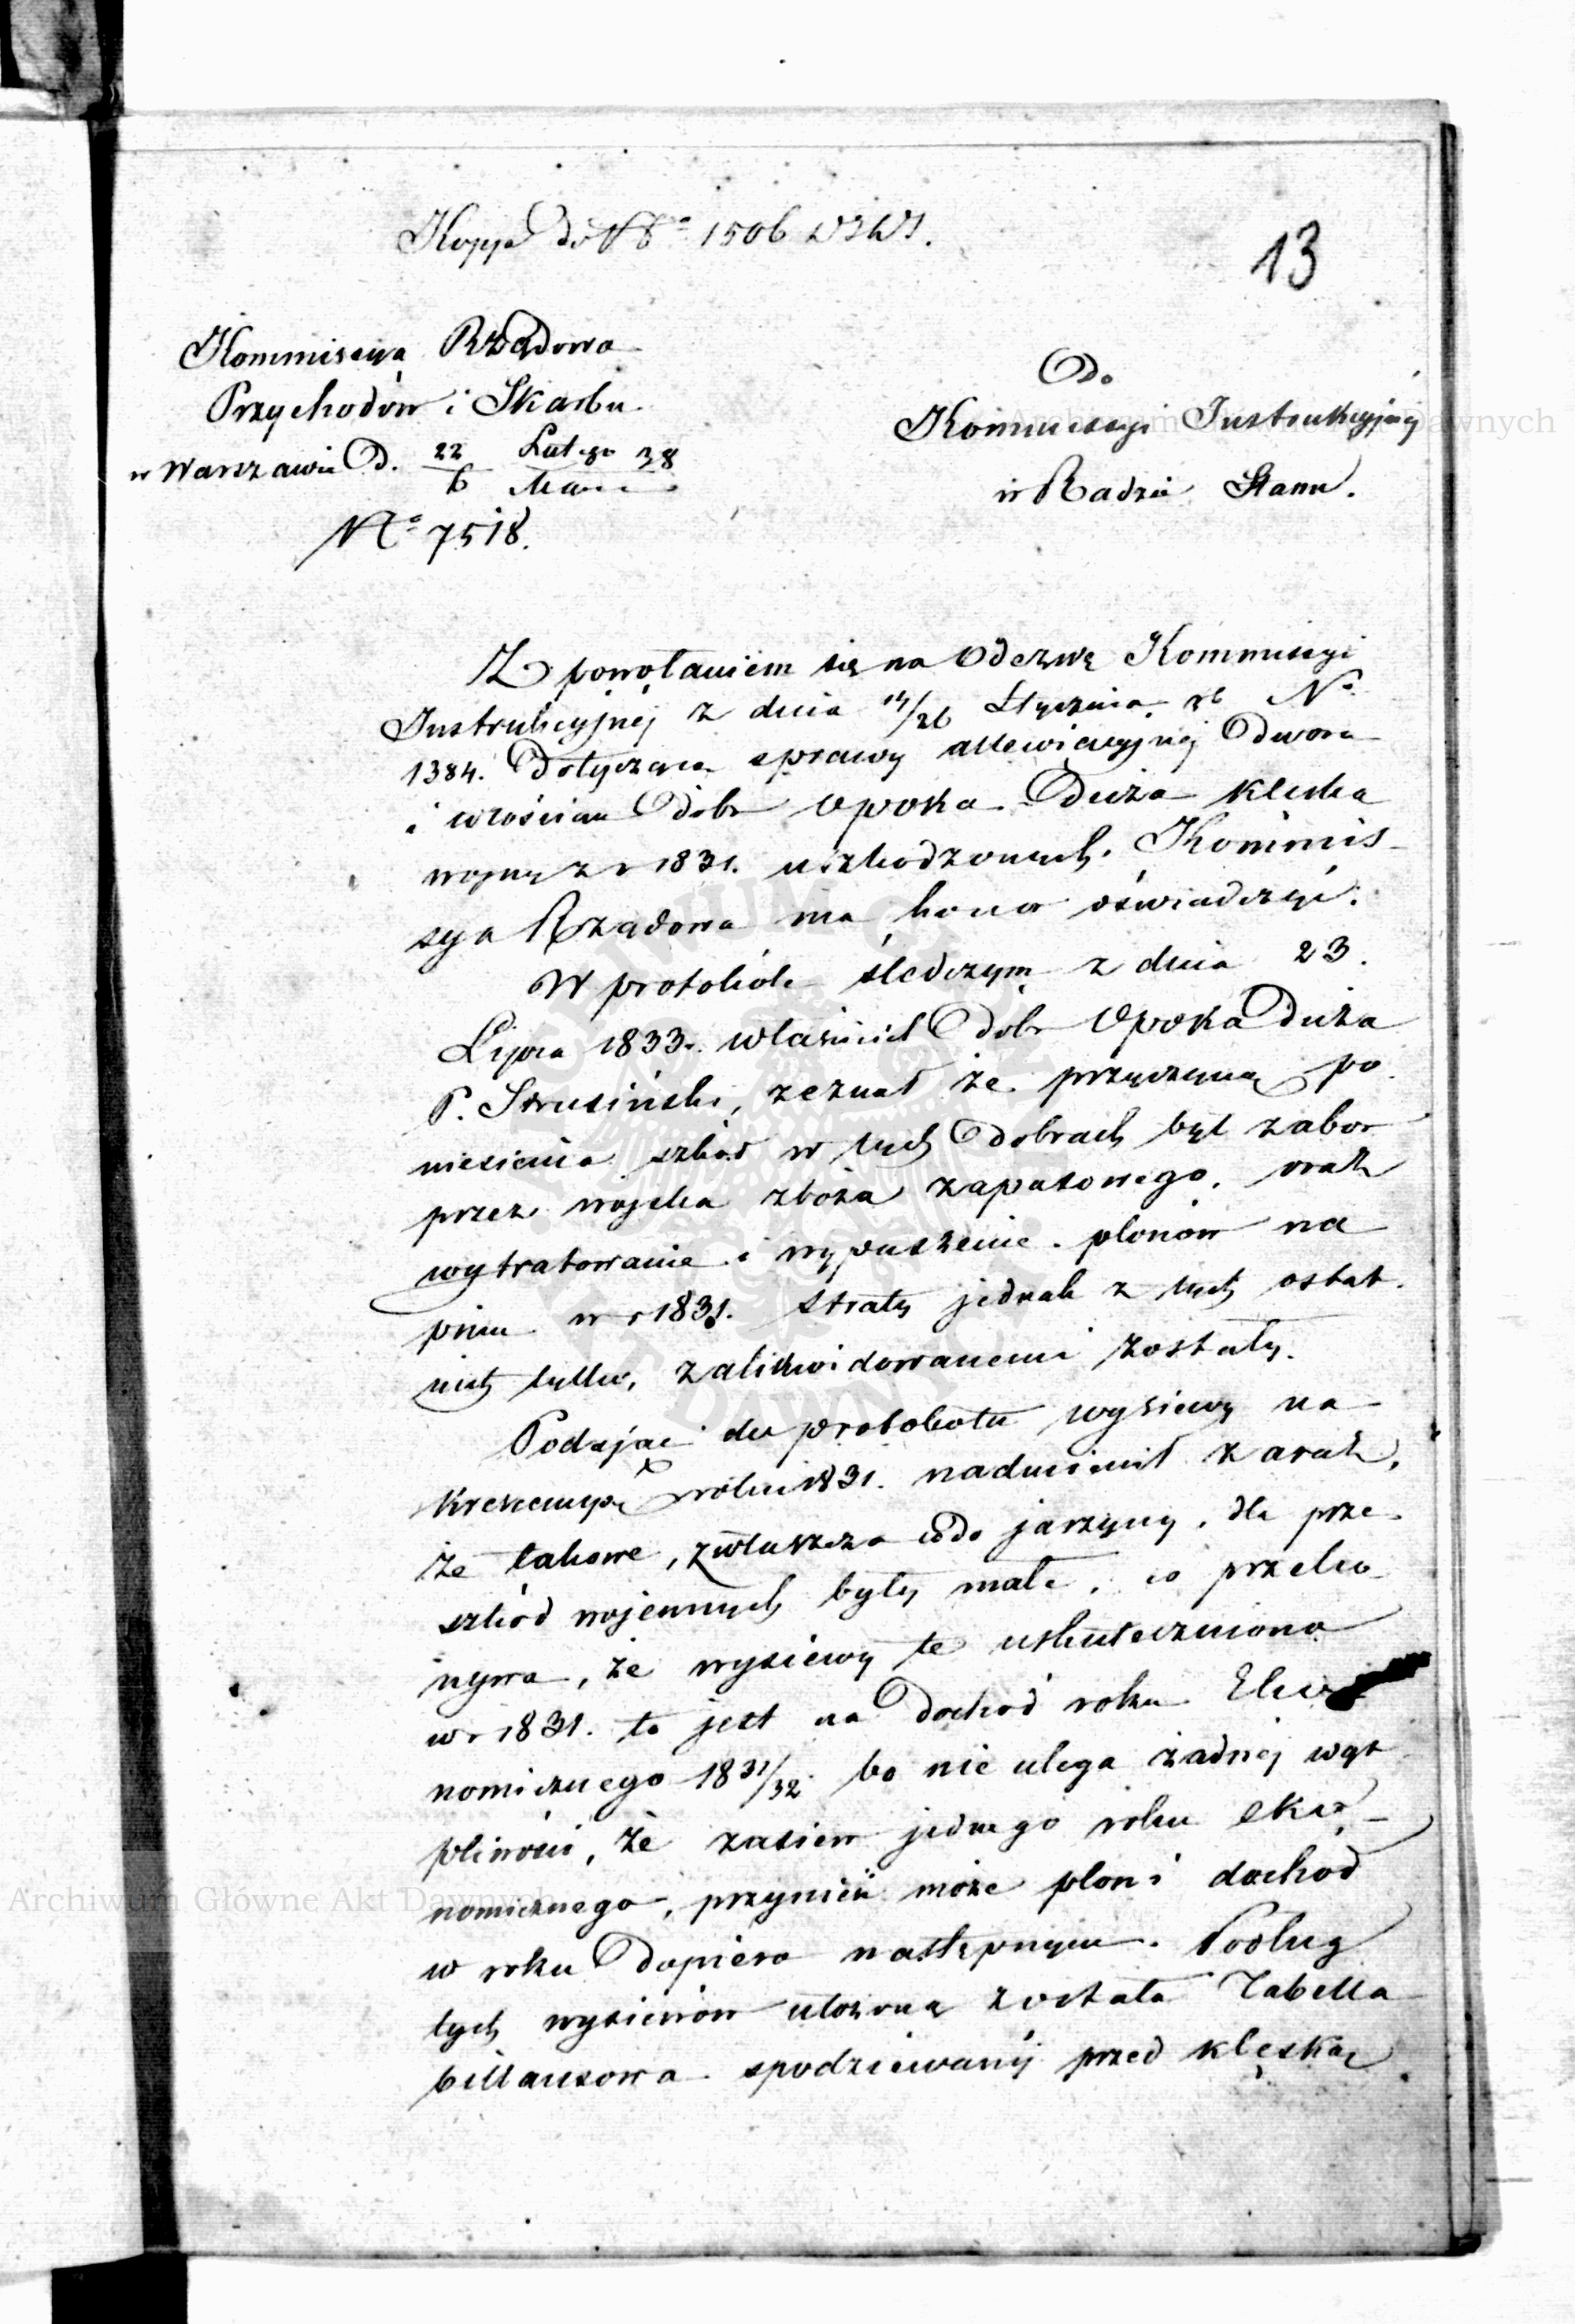 Kopja do N° 1506
13
Kommissya Rządowa
Przychodów i Skarbu
w Warszawie D. 22 Lutego 38
6 Marca
N° 7518.
Do
Kommissyi Instrukcyjnej
w Radzie Stanu.
Z powołaniem się na Odezwę Kommissyi
Instrukcyjnej z dnia 14/26 Stycznia rb N°
1384. Dotyczącą sprawy allewiacyjnej Dworu
i włościan Dóbr Opoka Duża klęską
wojny z r 1831. uszkodzonych. Kommis-
sya Rządowa ma honor oświadczyć.
W protokóle śledczym z dnia 23.
Lipca 1833. właściciel Dóbr Opoka Duża
P. Strusiński, zeznał że przyczyną po
niesienia szkód w tych Dobrach był zabor
przez wojska zboża zapasowego, oraz
wytratowanie i wypaszenie plonów na
pniu w r 1831. straty jednak z tych ostat
nich tylko, zalikwidowanemi zostały.
Podając do protokołu wysiewy na
Krescencyą roku 1831. nadmienił zaraz,
że takowe, zwłaszcza co do jarzyny, dla prze
szkód wojennych były małe, co przeko
nywa, że wysiewy te uskuteczniono
w r 1831. to jest na Dochód roku Eko
nomicznego 1831/32 bo nie ulega żadnej wąt
pliwości, że zasiew jednego roku eko-
nomicznego, przynieść może plon i dochód
w roku Dopiero następnym. Podług
tych wysiewów ułożoną została Tabella
billansowa spodziewanej przed klęską
Archiwum Główne Akt Dawnych
Archiwum Główne Akt Dawnych
ARCHIWUM GŁÓWNE AKT DAWNYCH